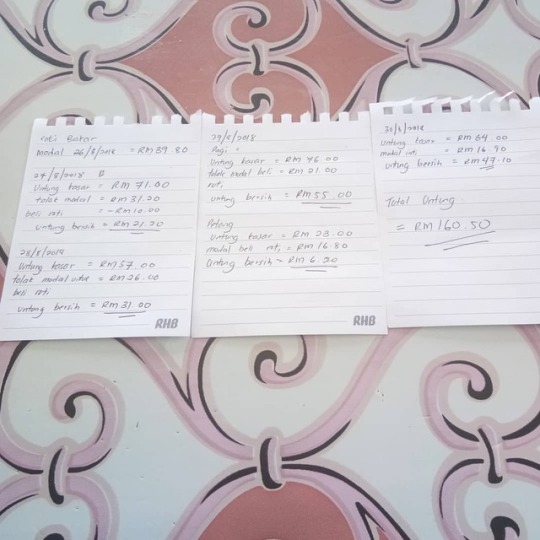 roti Bakar
modal 26/8/2018 = RM 39.80
27/8/2018
Untung kasar = RM 71.00
tolak modal = RM 31.20
beli roti = -RM 10.00
untung bersih = RM 21.20
28/8/2018
Untung kasar = RM 57.00
tolak modal untuk = RM 26.00
beli roti
untung bersih = RM 31.00
RHB
29/8/2018
Pagi =
Untung kasar = RM 76.00
tolak modal beli = RM 21.00
roti
untung bersih = RM 55.00
Petang
untung kasar = RM 23.00
modal beli roti = RM 16.80
Untung bersih = RM 6.20
RHB
30/8/2018
Untung kasar = RM 64.00
modal roti = RM 16.90
untung bersih = RM 47.10
Total Untung
= RM 160.50